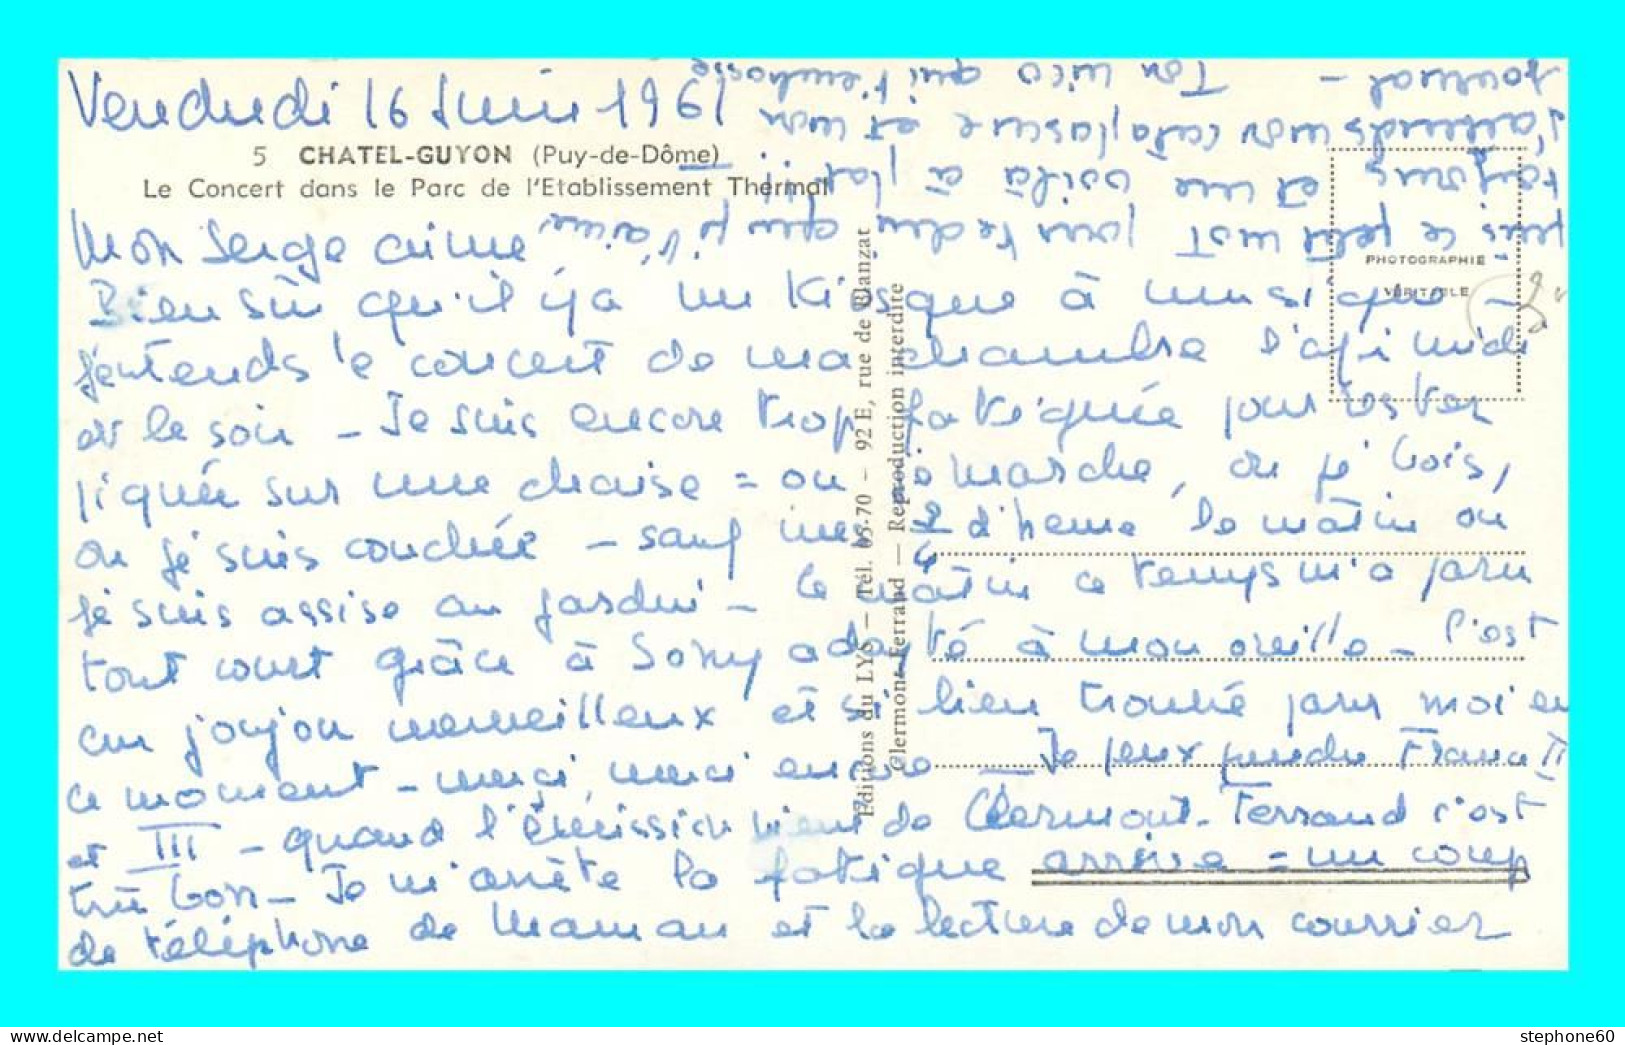 Vendredi 16 Juin 1961
5 CHATEL-GUYON (Puy-de-Dôme)
Le Concert dans le Parc de l'Etablissement Thermal
Mon Serge aimé
Bien sûr qu'il y a un Kiosque à musique -
j'entends le concert de ma chambre l'après midi
et le soir - Je suis encore trop fatiguée pour rester
piquée sur une chaise = ou je marche, ou je bois,
ou je suis couchée - sauf une 1/2 d'heure le matin où
je suis assise au jardin - Ce matin ce temps m'a paru
tout court grâce à Sony adapté à mon oreille - C'est
un joujou merveilleux et si bien trouvé pour moi en
ce moment - merci, merci encore - Je peux prendre France II
et III - quand l'émission vient de Clermont-Ferrand c'est
très bon - Je m'arrête la fatigue arrive = un coup
de téléphone de Maman et la lecture de mon courrier
puis ce petit mot pour te dire que je t'aime
toujours et me voilà à plat !!!
J'attends mon cataplasme et mon
journal - Ton qui t'embrasse
Editions du LYS — Tél. 05-70 - 92 E, rue de Blanzat
Clermont-Ferrand — Reproduction interdite
PHOTOGRAPHIE
VÉRITABLE
stephone60